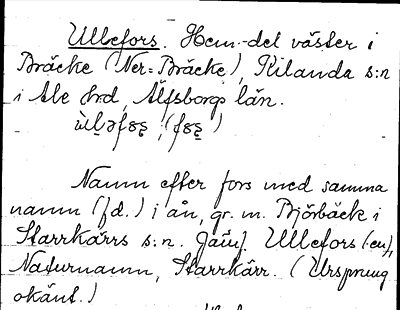 Ullefors. Hem.-del väster i
Bräcke (Ner=Bräcke), Kilanda s:n
i Ale hrd, Älfsborgs län.
Namn efter fors med samma
namn (fd.) i ån, gr. m. Björbäck i
Starrkärrs s:n. Jämf. Ullefors (-en),
Naturnamn, Starrkärr. (Ursprung
okänt.)